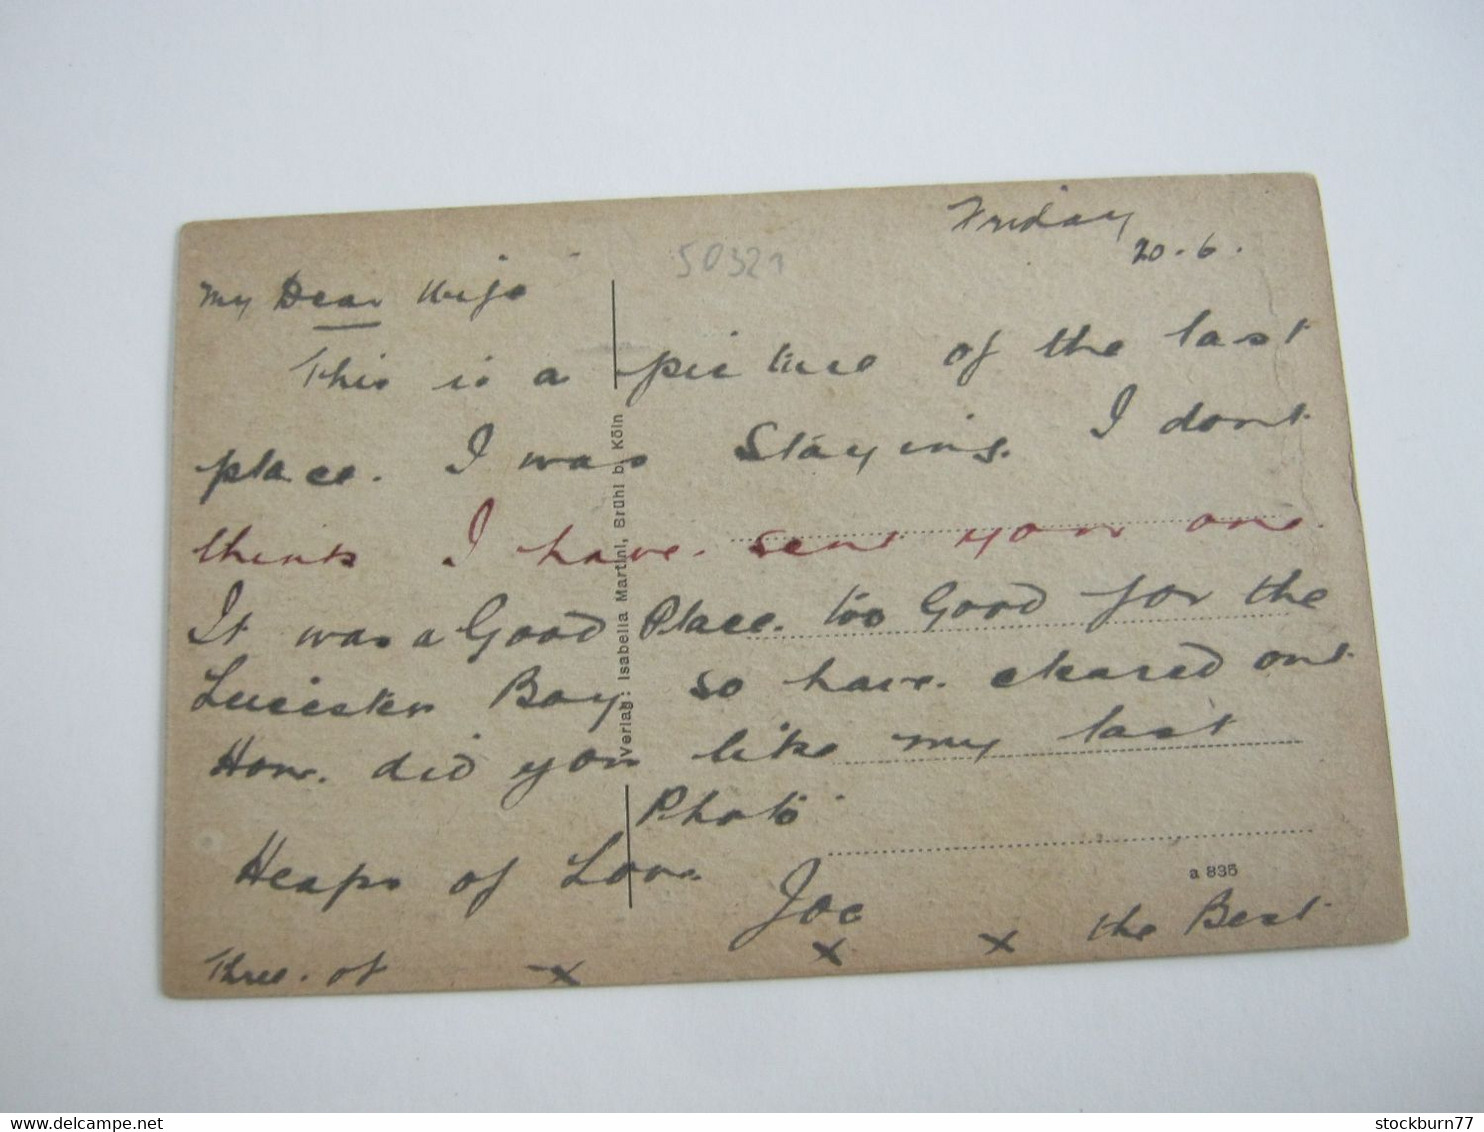 Friday
20.6.
50321
My Dear Wife
This is a picture of the last
place. I was Staying. I dont
think I have. sent you one.
It was a Good Place. too Good for the
Leicester Boy so have. cleared out
How. did you like my last
Photo
Heaps of Love.
Joe
Three. of x x x the Best
Verlag: Isabella Martini, Brühl b. Köln
a 835
stockburn77